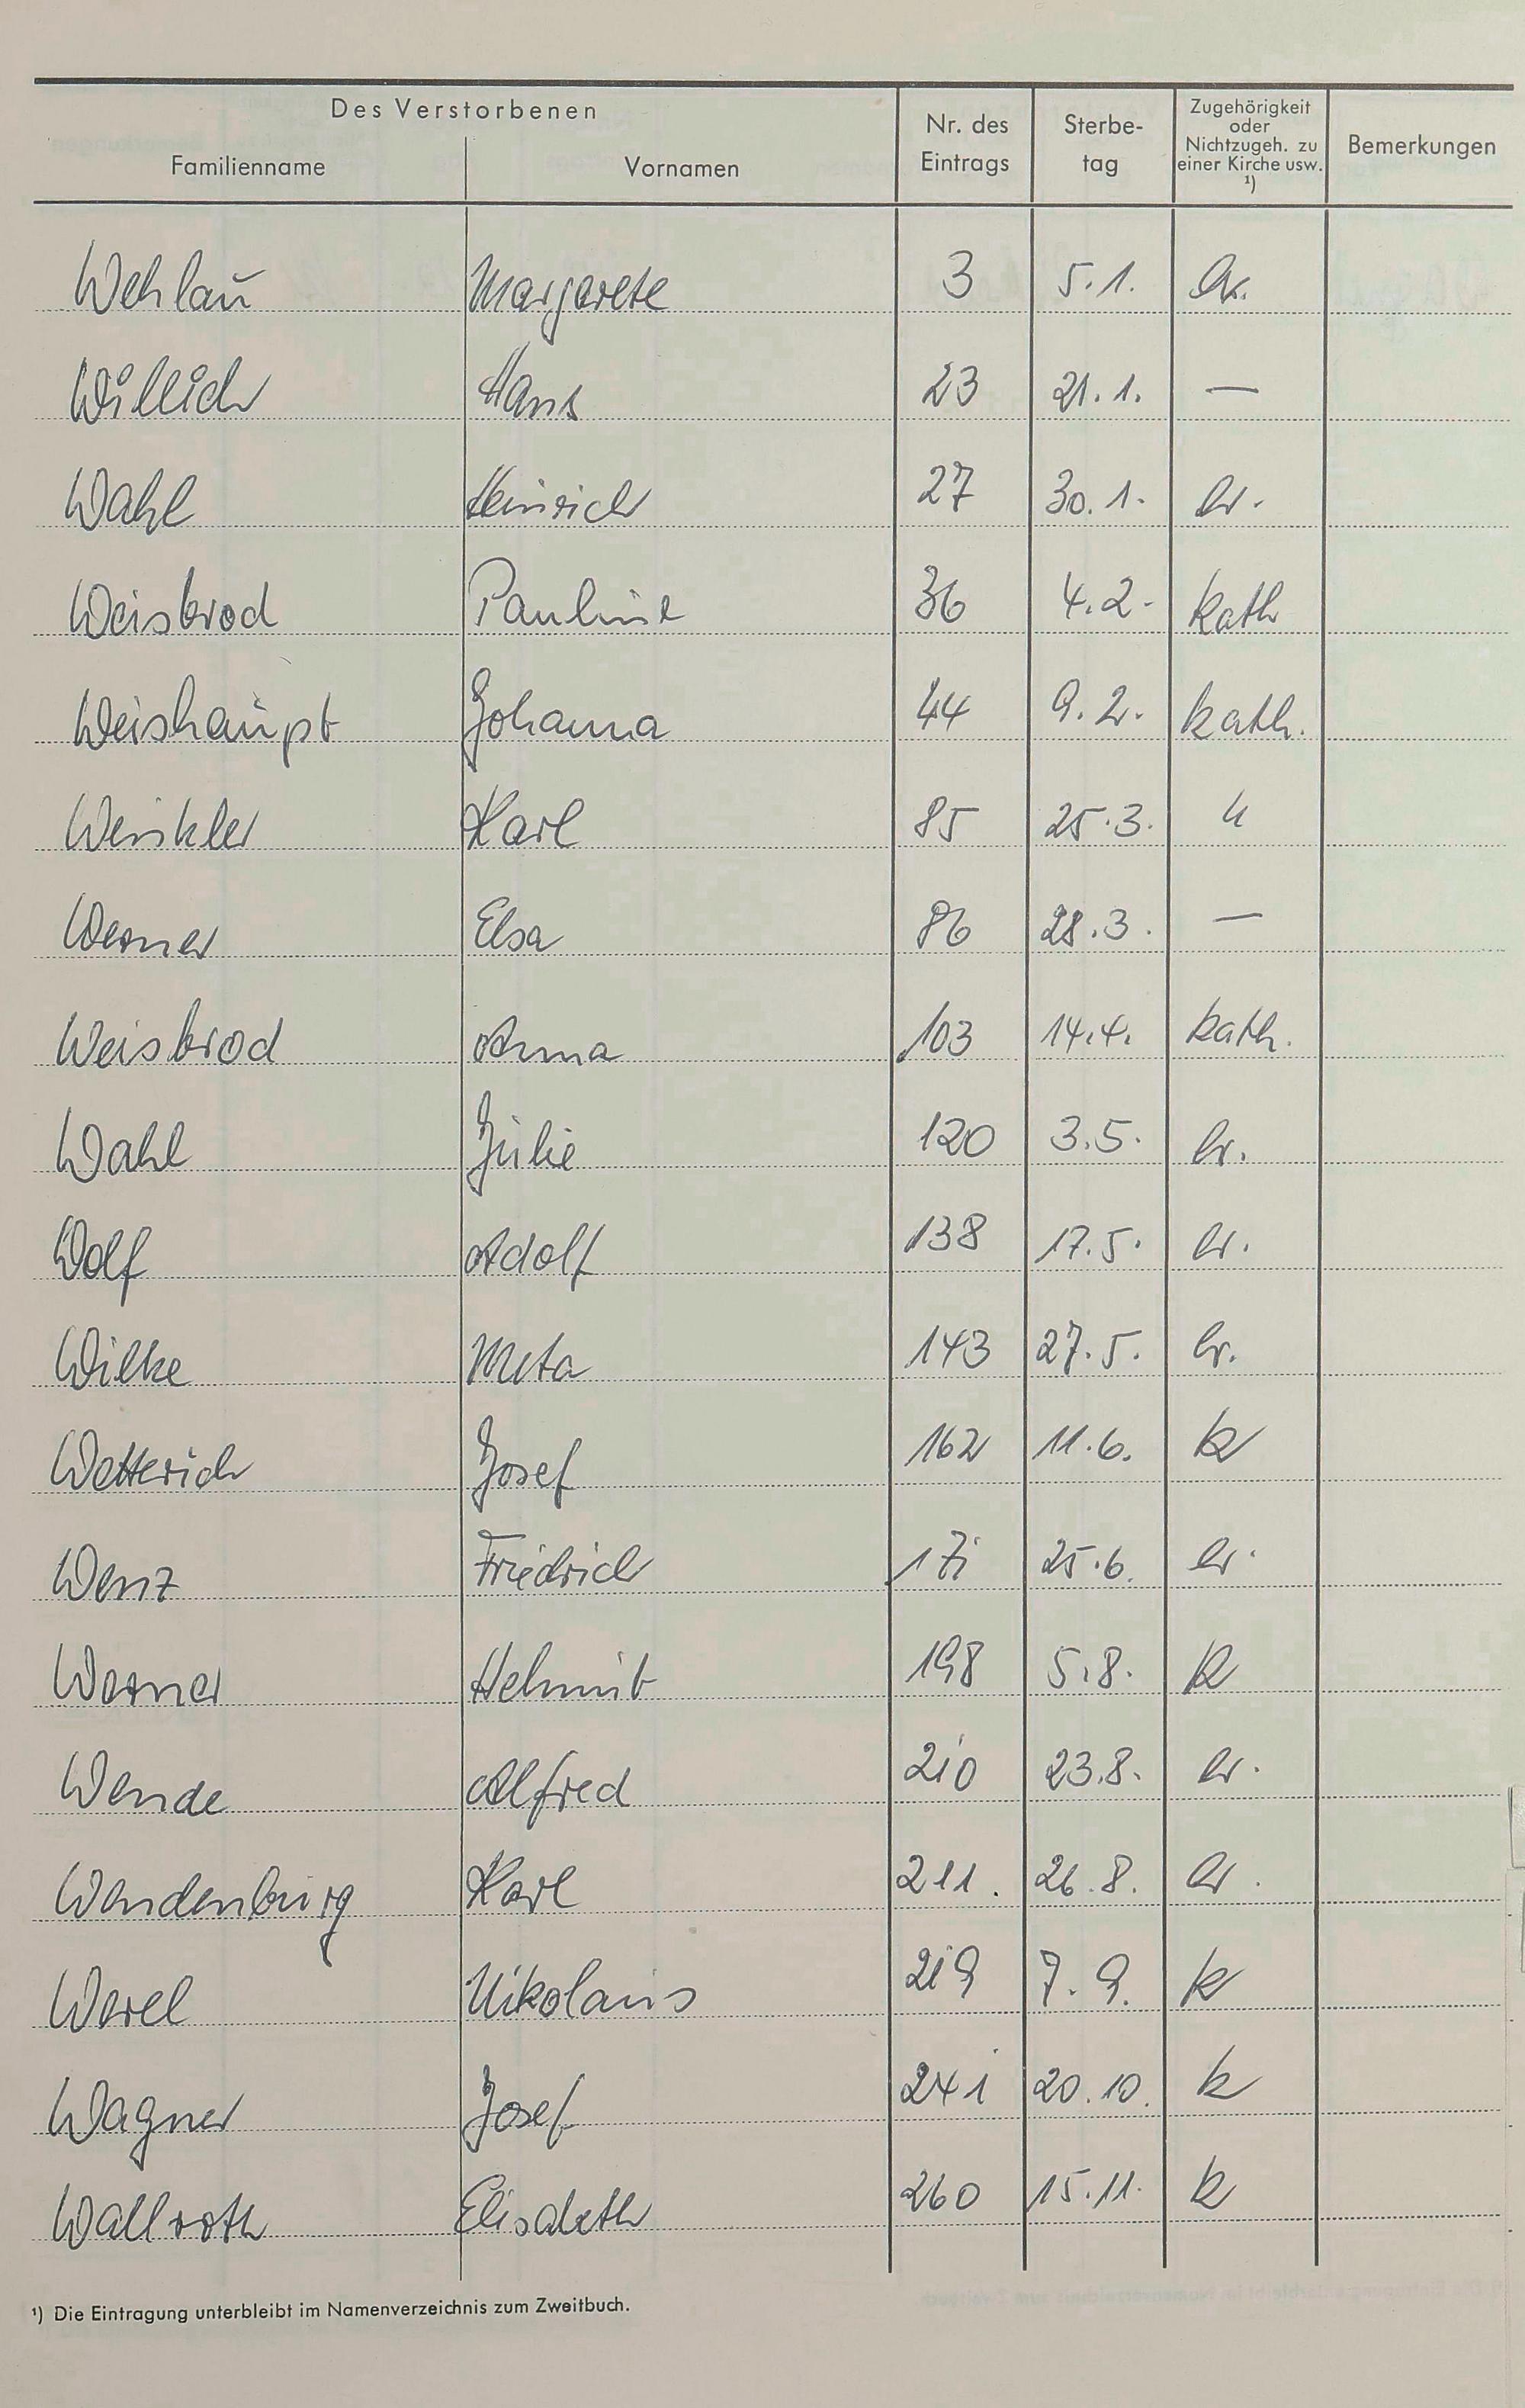 Des Verstorbenen
Familienname Vornamen Nr. des Eintrags Sterbe-tag Zugehörigkeit oder Nichtzugeh. zu einer Kirche usw. ¹) Bemerkungen
Wehlau Margarete 3 5.1. ev.
Willich Hans 23 21.1. —
Wahl Heinrich 27 30.1. ev.
Weisbrod Pauline 36 4.2. kath
Weishaupt Johanna 44 9.2. kath.
Winkler Karl 85 25.3. "
Werner Elsa 86 28.3. —
Weisbrod Anna 103 14.4. kath.
Wahl Julie 120 3.5. ev.
Wolf Adolf 138 17.5. ev.
Wilke Meta 143 27.5. ev.
Wetterich Josef 162 11.6. k
Wenz Friedrich 171 25.6. ev.
Werner Helmut 198 5.8. k
Wende Alfred 210 23.8. ev.
Wendenburg Karl 211. 26.8. ev.
Werel Nikolaus 219 7.9. k
Wagner Josef 241 20.10. k
Wallroth Elisabeth 260 15.11. k
¹) Die Eintragung unterbleibt im Namenverzeichnis zum Zweitbuch.